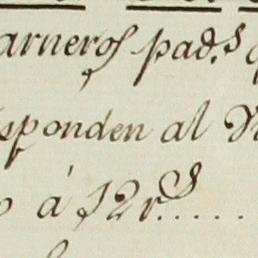 arneros pad.s
sponden al
á 12 r.s.....